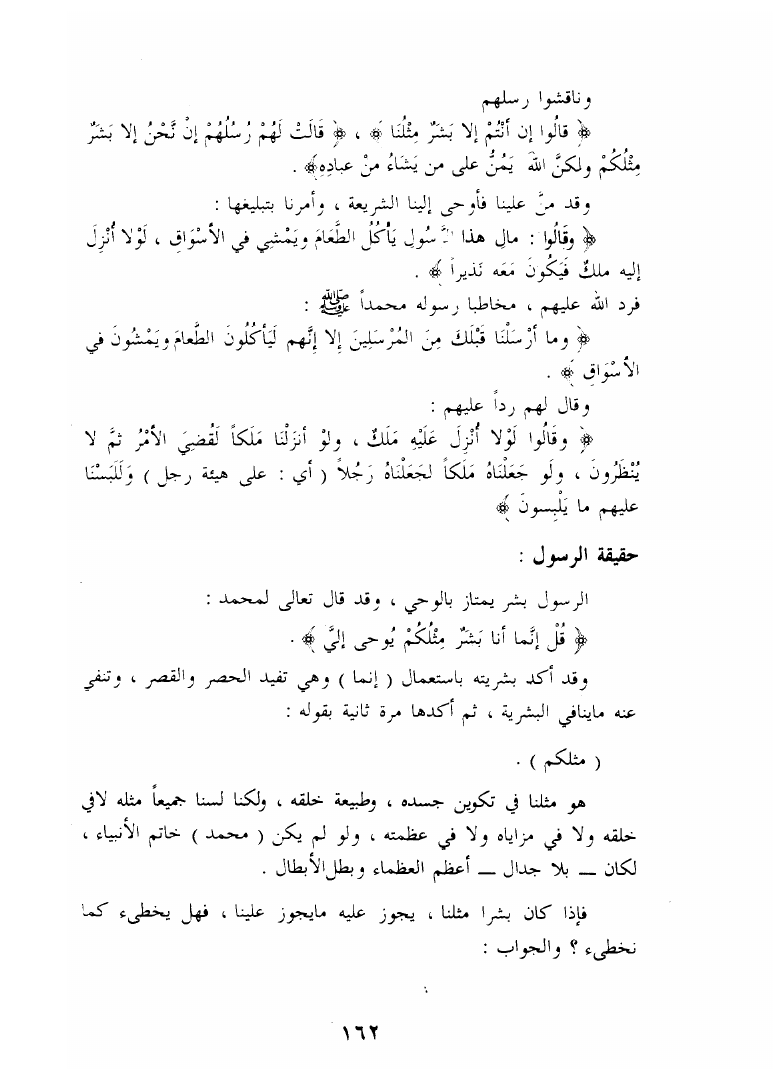 وناقشوا رسلهم
﴿ قالُوا إن أنْتُمْ إلا بَشَرٌ مِثْلُنَا ﴾ ، ﴿ قَالَتْ لَهُمْ رُسُلُهُمْ إنْ نَّحْنُ إلا بَشَرٌ
مِثْلُكُمْ ولكنَّ اللهَ يَمُنُّ على من يَشَاءُ منْ عبادِهِ ﴾ .
وقد منَّ علينا فأوحى إلينا الشريعة ، وأمرنا بتبليغها :
﴿ وقَالُوا : مالِ هذا الرَّسُولِ يَأْكُلُ الطَّعَامَ ويَمْشِي في الأسْوَاقِ ، لَوْلا أُنْزِلَ
إليه ملكٌ فَيَكُونَ مَعَه نَذيراً ﴾ .
فرد الله عليهم ، مخاطبا رسوله محمداً ﷺ :
﴿ وما أرْسَلْنَا قَبْلَكَ مِنَ المُرْسَلِينَ إلا إنَّهم لَيَأكُلُونَ الطَّعامَ ويَمْشُونَ في
الأسْوَاقِ ﴾ .
وقال لهم رداً عليهم :
﴿ وقَالُوا لَوْلا أُنْزِلَ عَلَيْهِ مَلَكٌ ، ولوْ أنزَلْنَا مَلَكاً لَقُضِيَ الأمْرُ ثمَّ لا
يُنْظَرُونَ ، ولَو جَعَلْنَاهُ مَلَكاً لجَعَلْنَاهُ رَجُلاً ( أي : على هيئة رجل ) وَلَلَبَسْنَا
عليهم ما يَلْبِسونَ ﴾
حقيقة الرسول :
الرسول بشر يمتاز بالوحي ، وقد قال تعالى لمحمد :
﴿ قُلْ إنَّما أنا بَشَرٌ مِثْلُكُمْ يُوحى إليَّ ﴾ .
وقد أكد بشريته باستعمال ( إنما ) وهي تفيد الحصر والقصر ، وتنفي
عنه ماينافي البشرية ، ثم أكدها مرة ثانية بقوله :
( مثلكم ) .
هو مثلنا في تكوين جسده ، وطبيعة خلقه ، ولكنا لسنا جميعاً مثله لافي
خلقه ولا في مزاياه ولا في عظمته ، ولو لم يكن ( محمد ) خاتم الأنبياء ،
لكان ــ بلا جدال ــ أعظم العظماء وبطل الأبطال .
فإذا كان بشرا مثلنا ، يجوز عليه مايجوز علينا ، فهل يخطىء كما
نخطىء ؟ والجواب :
١٦٢